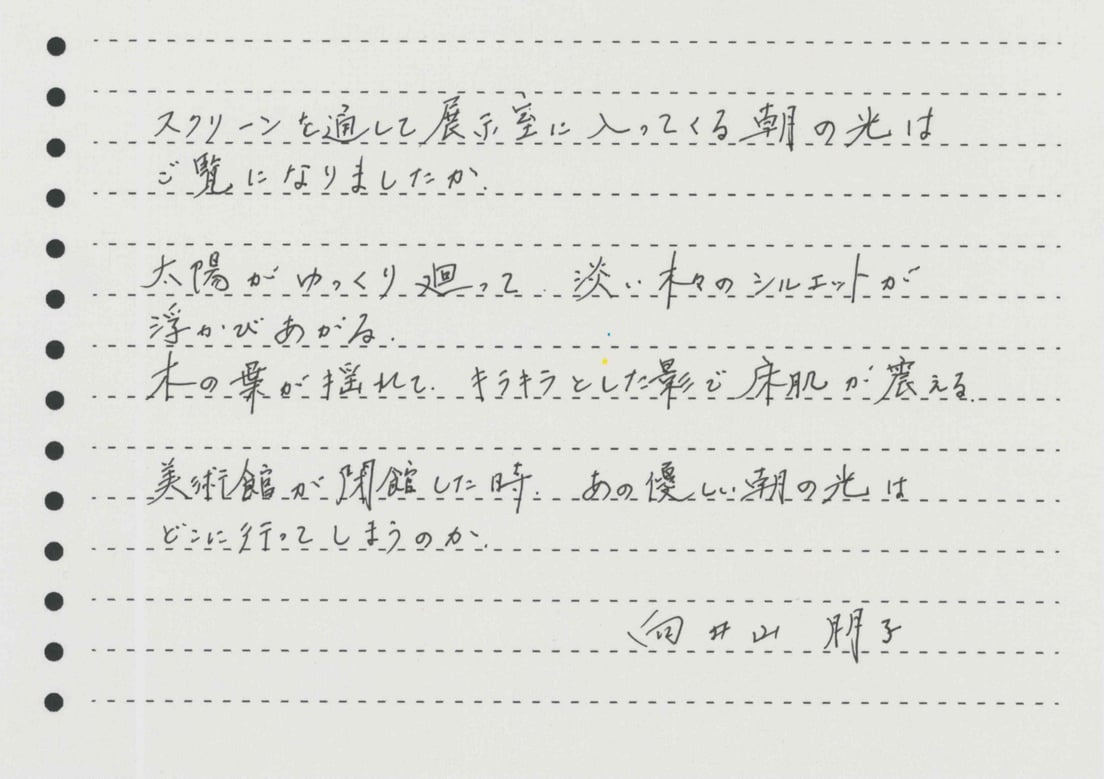 スクリーンを通して展示室に入ってくる朝の光は
ご覧になりましたか.
太陽がゆっくり廻って. 淡い木々のシルエットが
浮かびあがる.
木の葉が揺れて. キラキラとした影で床肌が震える.
美術館が閉館した時. あの優しい朝の光は
どこに行ってしまうのか.
向井山 朋子